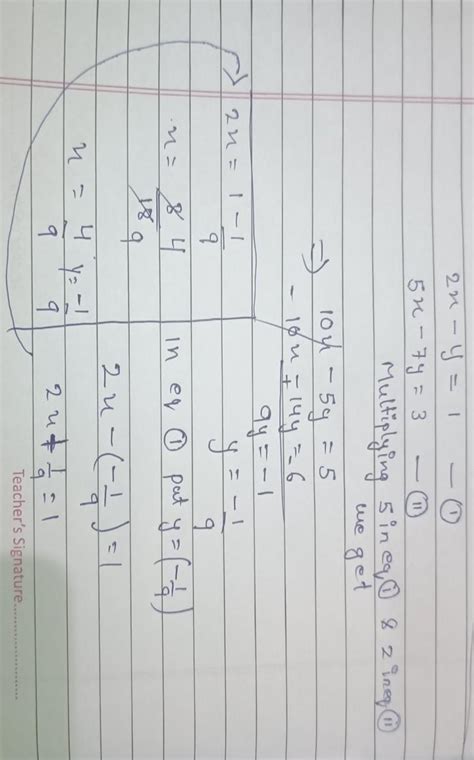 2x - y = 1 — (I)
5x - 7y = 3 — (II)
Multiplying 5 in eq (I) & 2 in eq (II)
we get
⇒ 10x - 5y = 5
- 10x + 14y = -6
9y = -1
y = -1/9
In eq (I) put y = (-1/9)
2x - (-1/9) = 1
2x + 1/9 = 1
2x = 1 - 1/9
x = 8 4/18 9
x = 4/9 y = -1/9
Teacher's Signature....................